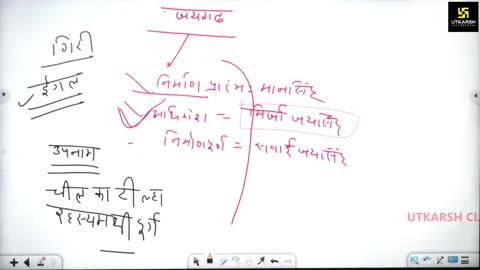 जयगढ
UTKARSH
गिरी
ईगल
निर्माण प्रारंभ - मानसिंह
अधिकांश - मिर्जा जयसिंह
- निर्माणपूर्ण = सवाई जयसिंह
उपनाम
चील का टी ल्हा
रहस्यमयी दुर्ग
UTKARSH CL